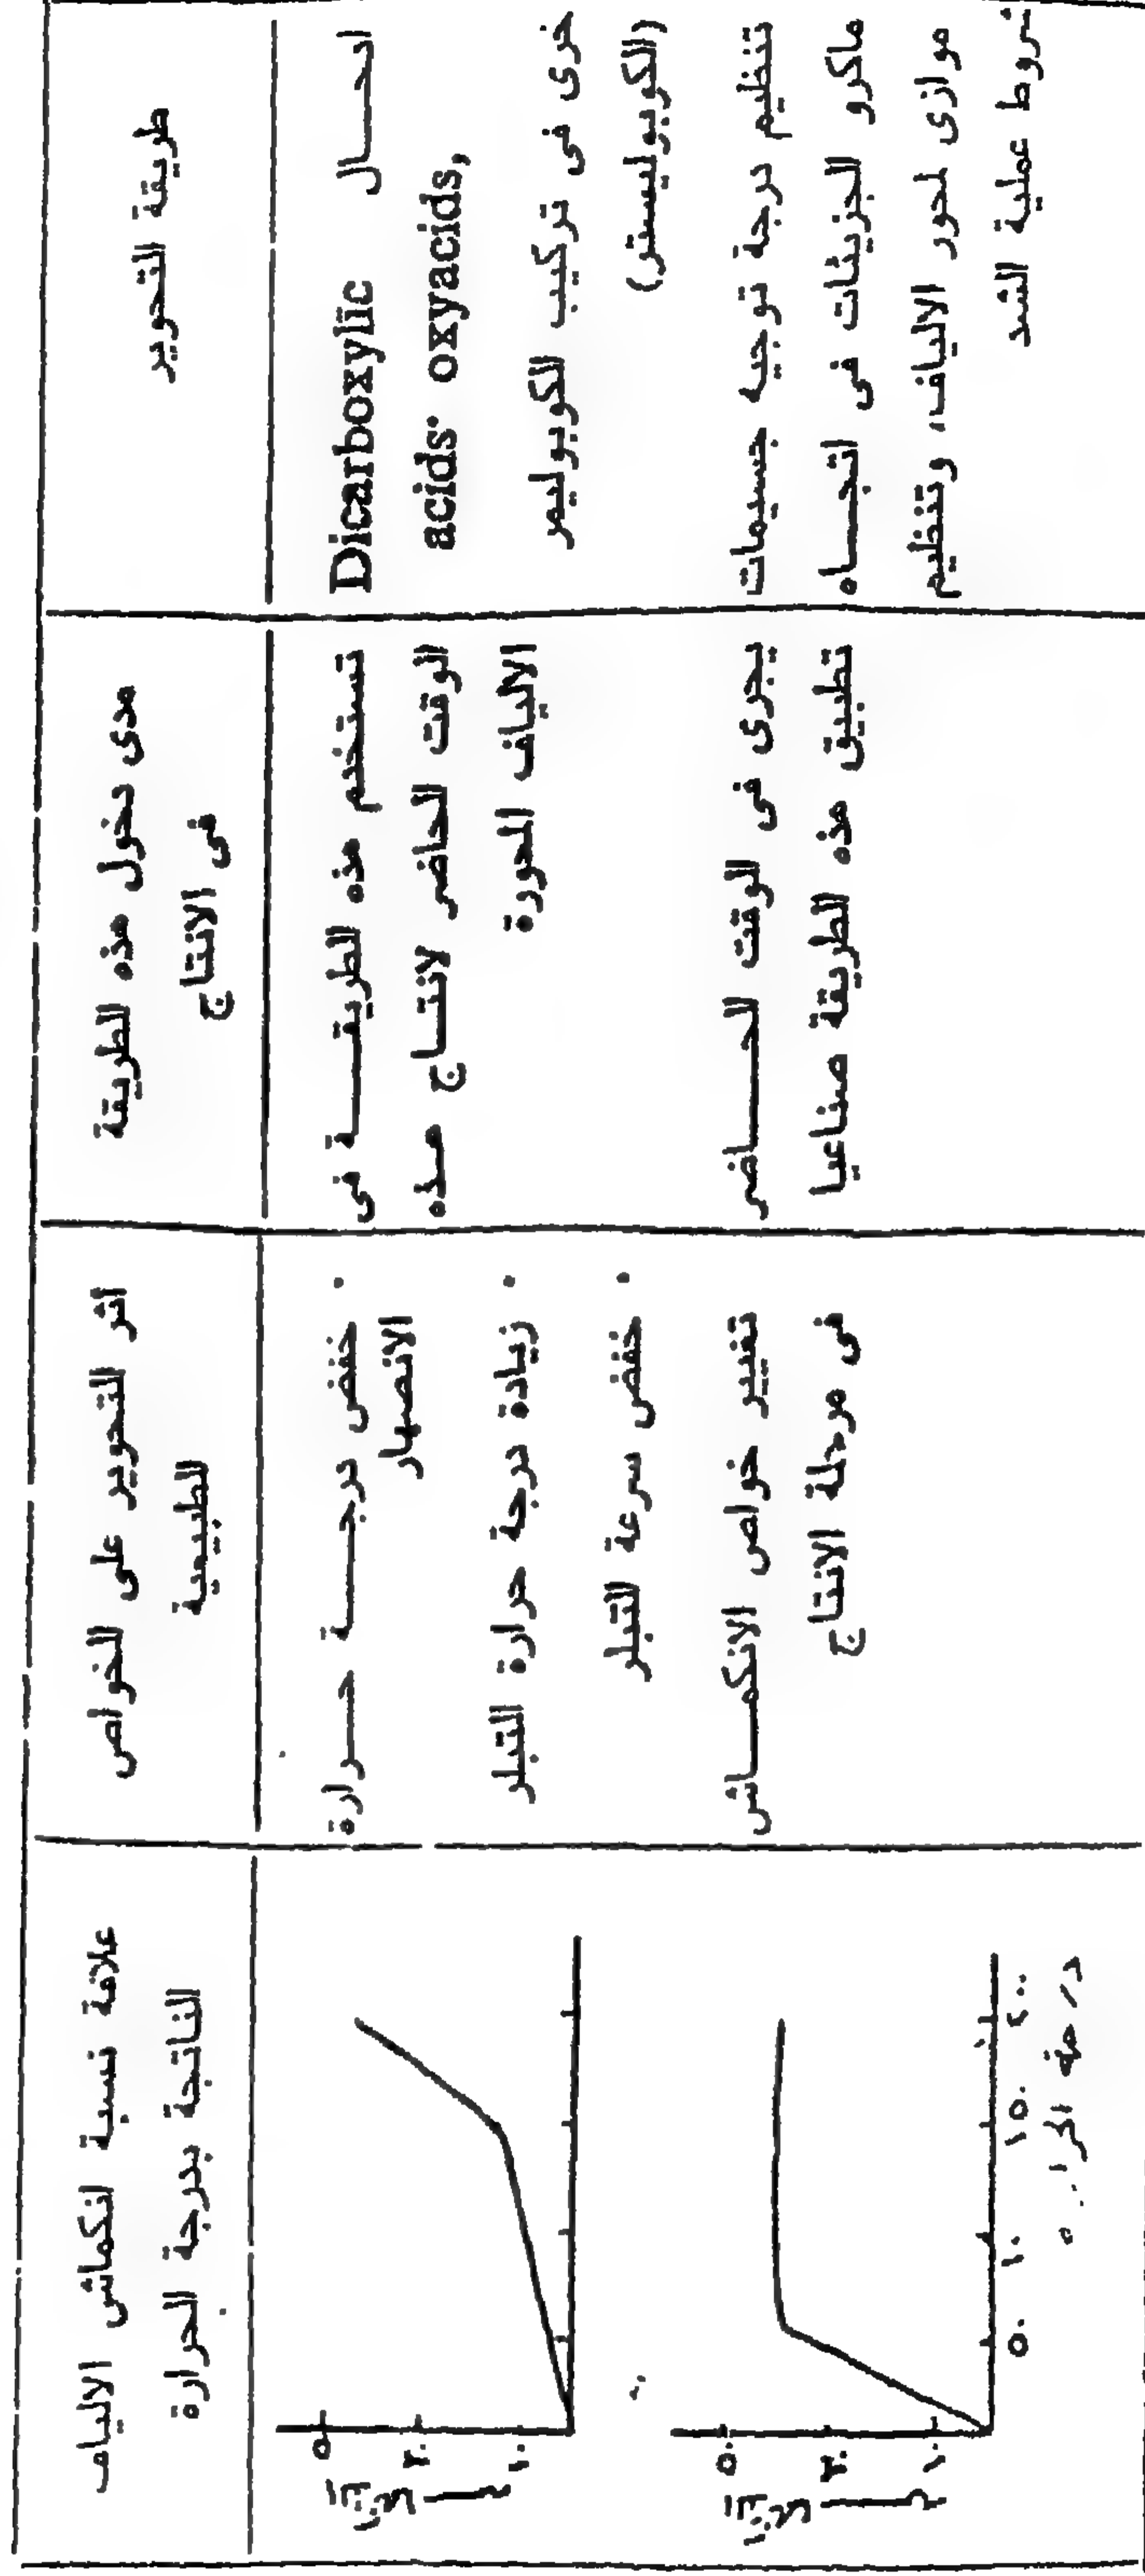 طريقة التحوير
مدى دخول هذه الطريقة
فى الانتاج
اثر التحوير على الخواص
الطبيعية
علاقة نسبة انكماش الالياف
الناتجة بدرجة الحرارة
ادخـال Dicarboxylic
acids· oxyacids,
خرى فى تركيب الكوبوليمر
(الكوبوليستر)
تستخدم هذه الطريقـــة فى
الوقت الحاضر لانتــاج هــذه
الالياف المحورة
• خفض درجـــة حــرارة
الانصهار
• زيادة درجة حرارة التبلر
• خفض سرعة التبلر
٥٠
٣٠
١٠
تنظيم درجة توجيه جسيمات
ماكرو الجزيئات فى اتجــاه
موازى لمحور الالياف، وتنظيم
شروط عملية الشد
يجرى فى الوقت الحــاضر
تطبيق هذه الطريقة صناعيا
تغيير خواص الانكمــاش
فى مرحلة الانتاج
٥٠
٣٠
١٠
٥٠ ١٠٠ ١٥٠ ٢٠٠
درجة الحرارة